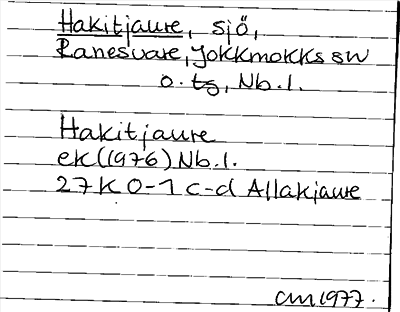 Hakitjaure, sjö,
Ranesvare, Jokkmokks sn
o. tg, Nb.l.
Hakitjaure
ek (1976) Nb.l.
27K 0-1 c-d Allakjaure
CM 1977.